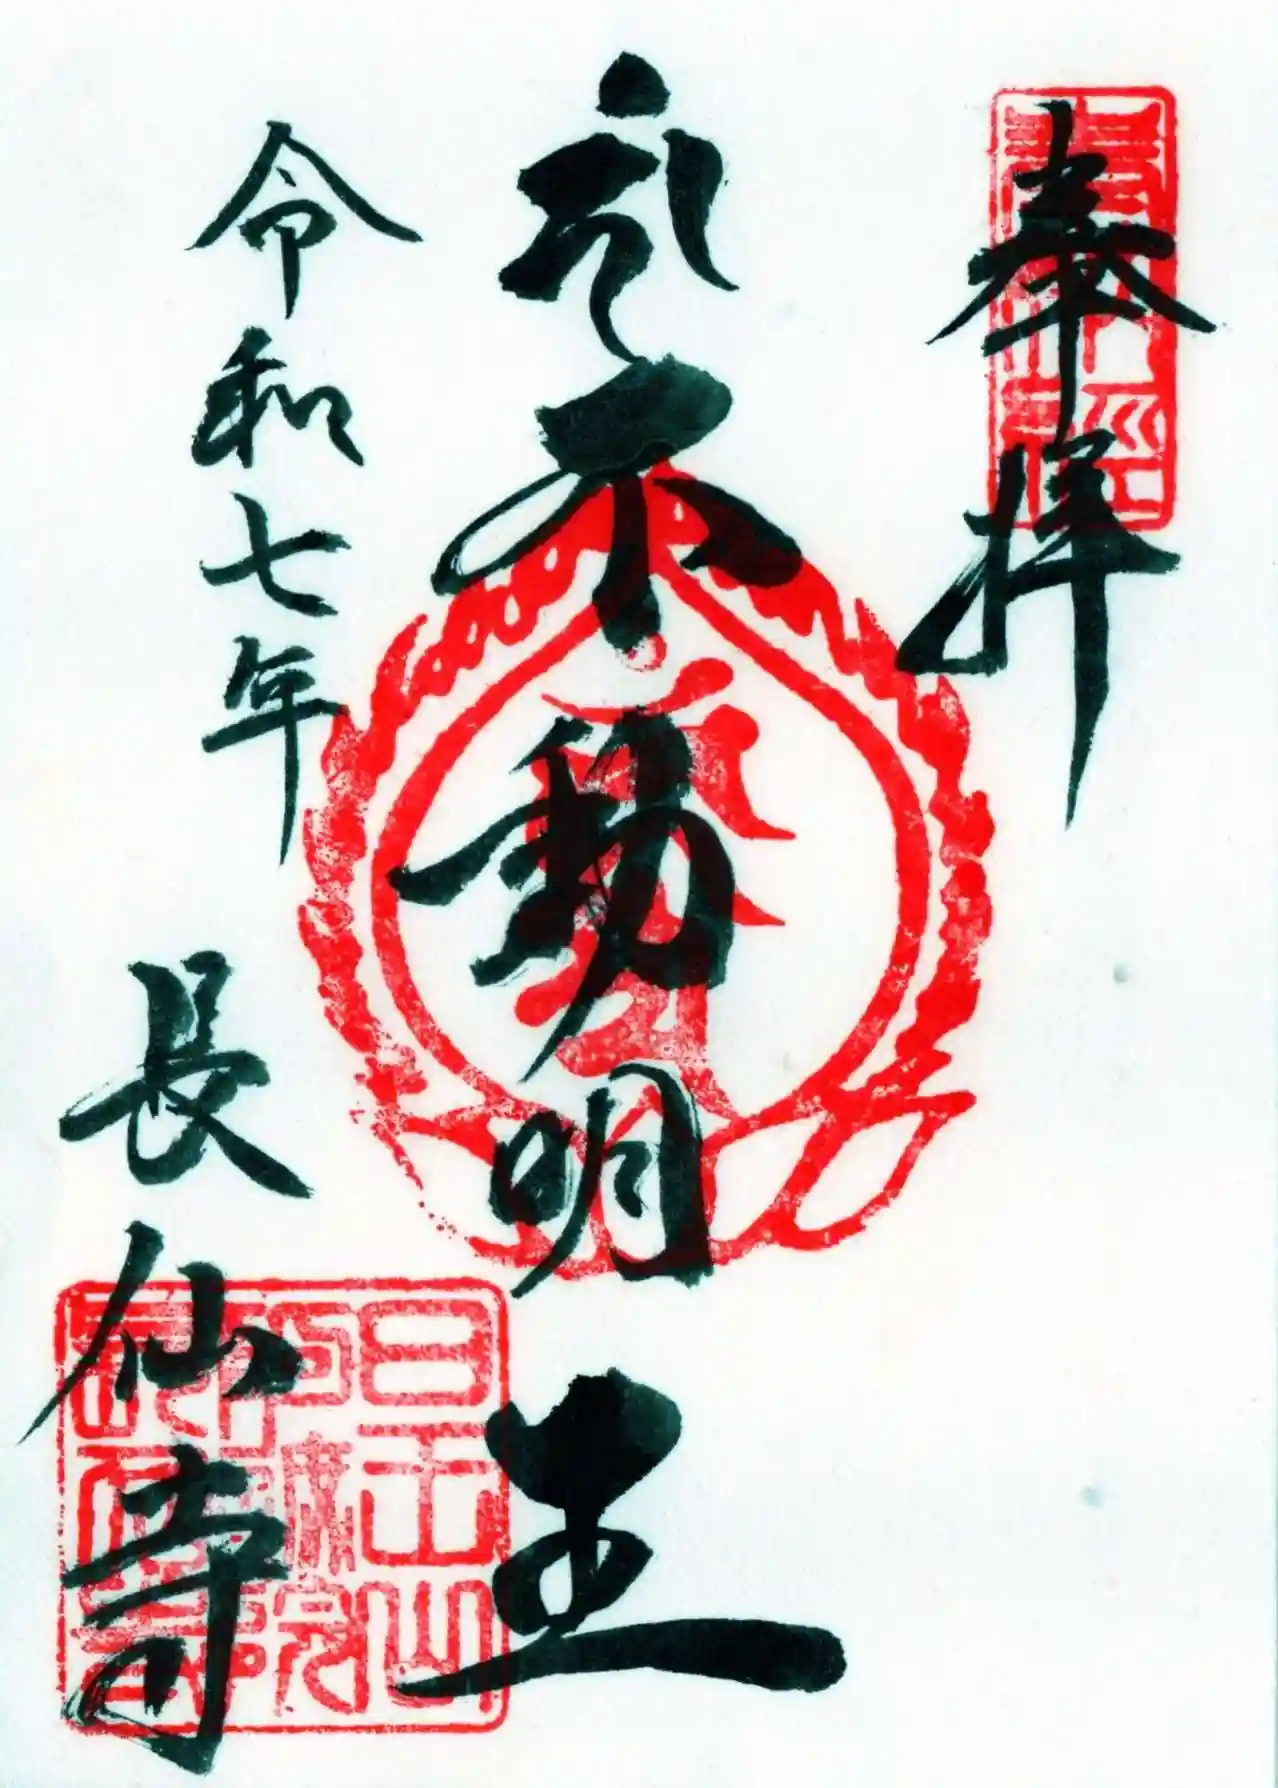 奉拝
不動明王
令和七年
長仙寺
日王山